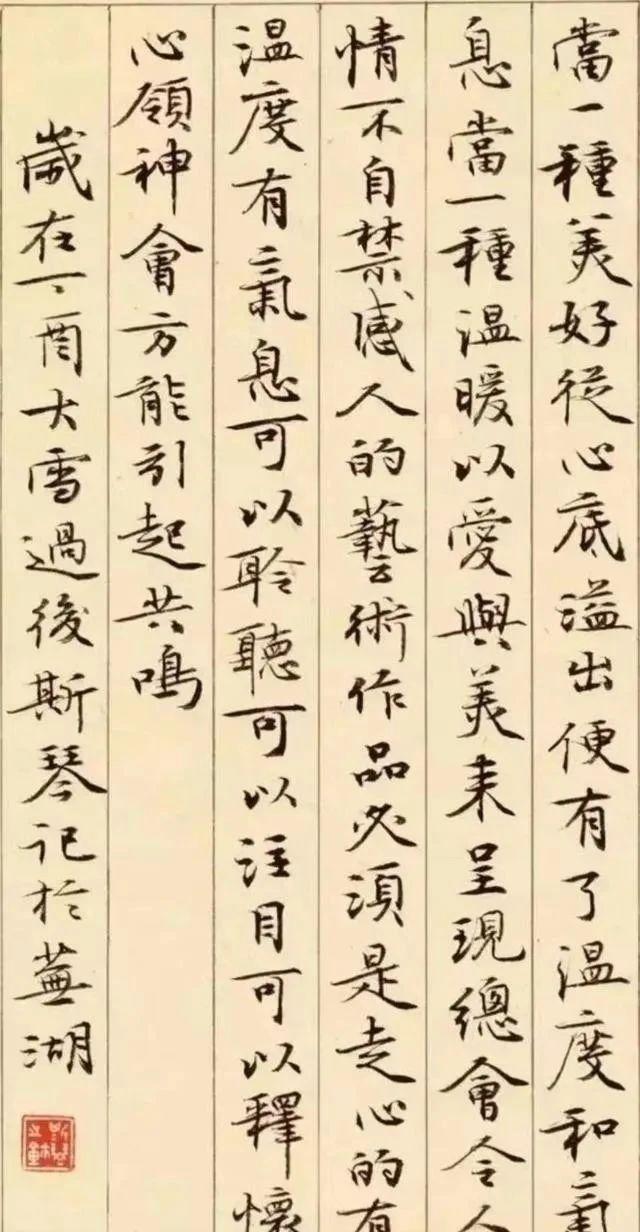 當一種美好從心底溢出便有了温度和氣
息當一種温暖以愛與美来呈現總會令人
情不自禁感人的藝術作品必須是走心的有
温度有氣息可以聆聽可以注目可以釋懷
心領神會方能引起共鳴
歲在丁酉大雪過後斯琴记於蕪湖